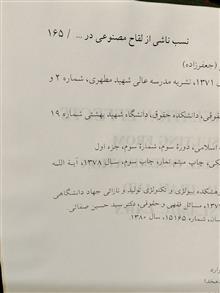 نسب ناشی از لقاح مصنوعی در ... / ۱۶۵
(جعفرزاده)
۱۳۷۱، نشریه مدرسه عالی شهید مطهری، شماره ۲ و
حقوقی، دانشکده حقوق، دانشگاه شهید بهشتی شماره ۱۹
اسلامی، دورهٔ سوم، شمارهٔ سوم، جزء اول
چاپ میثم تمار، چاپ سوم، سال ۱۳۷۸، آیة الله
پژوهشکده بیولوژی و تکنولوژی تولید و نازائی جهاد دانشگاهی
مسائل فقهی و حقوقی، دکتر سید حسین صفائی
شماره ۱۵۱۶۵، سال ۱۳۸۰